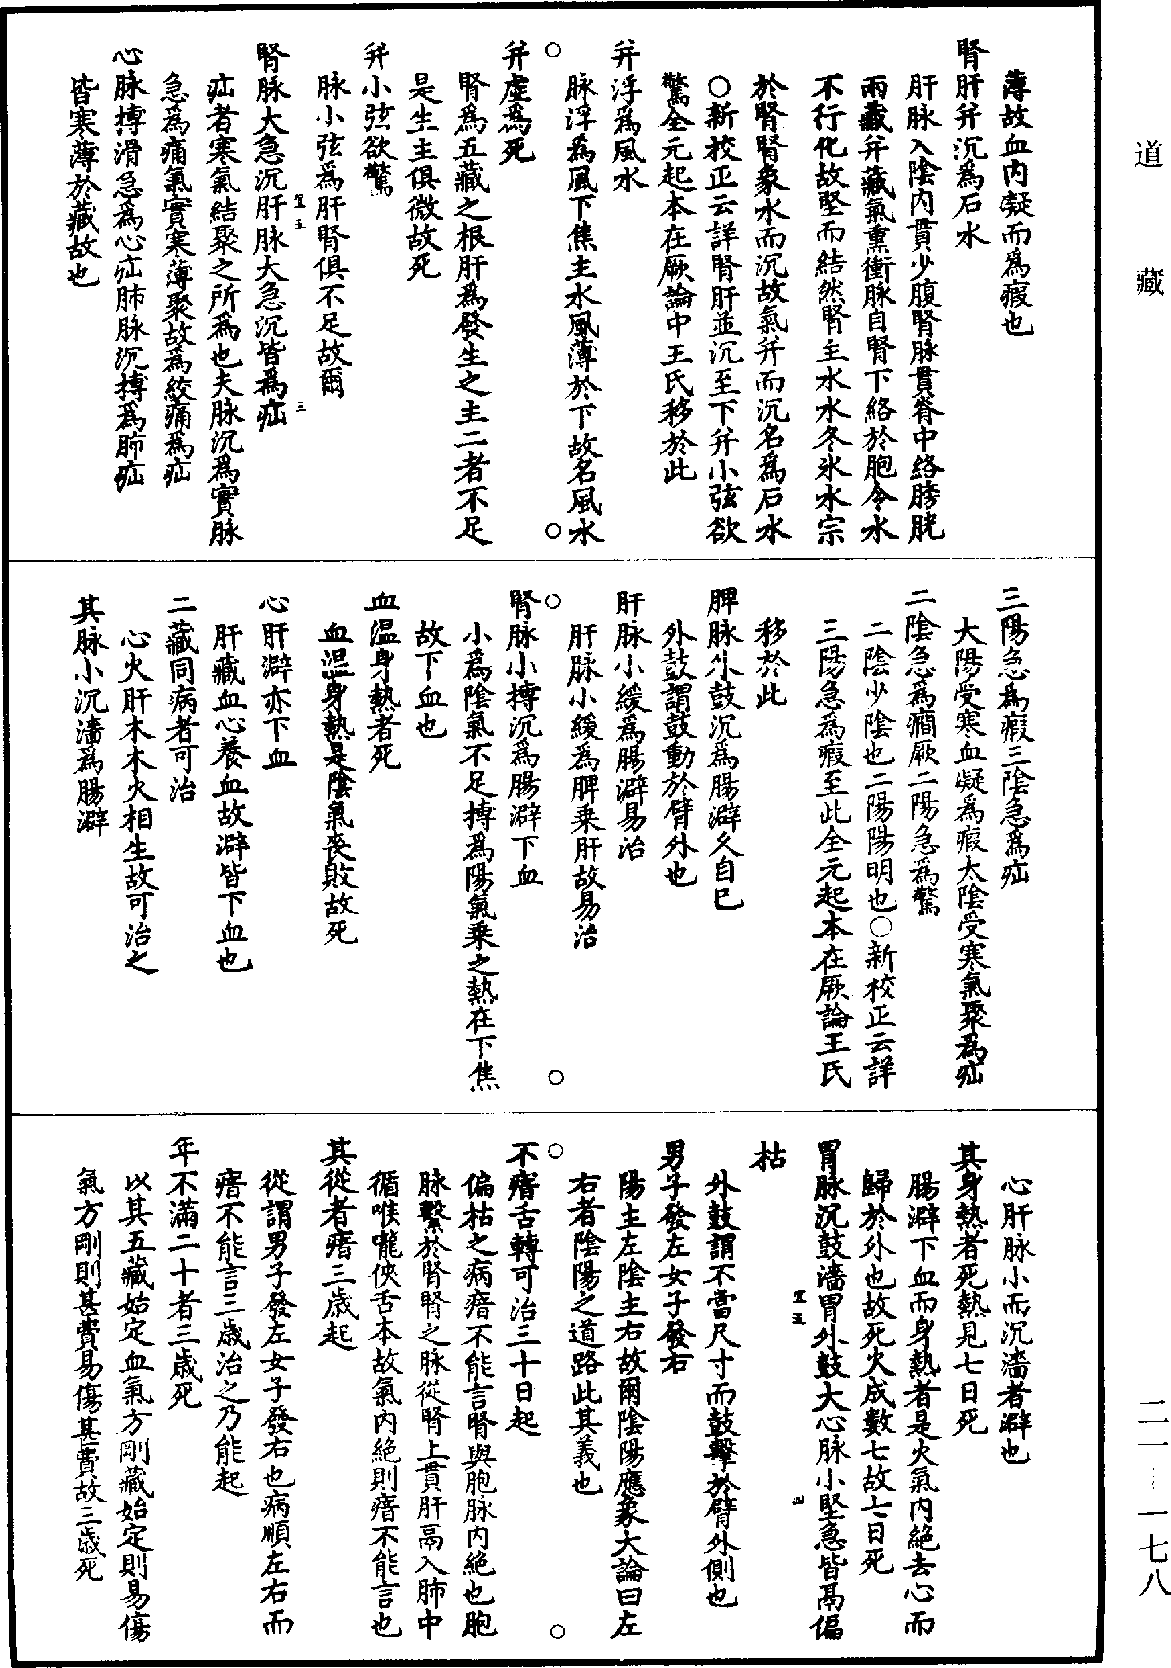 道藏
薄故血内凝而為瘕也
腎肝并沉為石水
肝脉入陰内貫少腹腎脉貫脊中絡膀胱
兩藏并藏氣熏衝脉自腎下絡於胞令水
不行化故堅而結然腎主水水冬氷水宗
於腎腎象水而沉故氣并而沉名為石水
○新校正云詳腎肝並沉至下并小弦欲
驚全元起本在厥論中王氏移於此
并浮為風水
脉浮為風下焦主水風薄於下故名風水
并虛為死
腎為五藏之根肝為發生之主二者不足
是生主俱微故死
并小弦欲驚
脉小弦為肝腎俱不足故爾
腎脉大急沉肝脉大急沉皆為疝
疝者寒氣結聚之所為也夫脉沉為實脉
急為痛氣實寒薄聚故為絞痛為疝
心脉搏滑急為心疝肺脉沉搏為肺疝
皆寒薄於藏故也
三陽急為瘕三陰急為疝
太陽受寒血凝為瘕太陰受寒氣聚為疝
二陰急為癇厥二陽急為驚
二陰少陰也二陽陽明也○新校正云詳
三陽急為瘕至此全元起本在厥論王氏
移於此
脾脉外鼓沉為腸澼久自已
外鼓謂鼓動於臂外也
肝脉小緩為腸澼易治
肝脉小緩為脾乘肝故易治
腎脉小搏沉為腸澼下血
小為陰氣不足搏為陽氣乘之熱在下焦
故下血也
血温身熱者死
血温身熱是陰氣喪敗故死
心肝澼亦下血
肝藏血心養血故澼皆下血也
二藏同病者可治
心火肝木木火相生故可治之
其脉小沉濇為腸澼
心肝脉小而沉濇者澼也
其身熱者死熱見七日死
腸澼下血而身熱者是火氣内絶去心而
歸於外也故死火成數七故七日死
胃脉沉鼓濇胃外鼓大心脉小堅急皆鬲偏
枯
外鼓謂不當尺寸而鼓擊於臂外側也
男子發左女子發右
陽主左陰主右故爾陰陽應象大論曰左
右者陰陽之道路此其義也
不瘖舌轉可治三十日起
偏枯之病瘖不能言腎與胞脉内絶也胞
脉繫於腎腎之脉從腎上貫肝鬲入肺中
循喉嚨俠舌本故氣内絶則瘖不能言也
其從者瘖三歳起
從謂男子發左女子發右也病順左右而
瘖不能言三歳治之乃能起
年不滿二十者三歳死
以其五藏始定血氣方剛藏始定則易傷
氣方剛則甚費易傷甚費故三歳死
二一·一七八